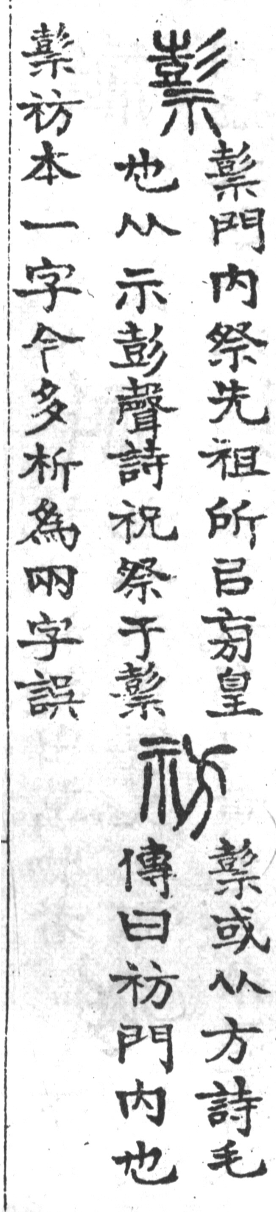 𥛱
𥛱門内祭先祖所㠯㫄皇
也从示彭聲詩祝祭于𥛱
祊
𥛱或从方詩毛
傳曰祊門内也
𥛱祊本一字今多析爲兩字誤